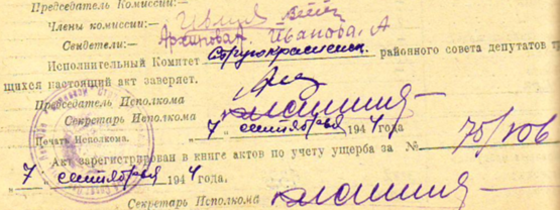 Председатель Комиссии:—
Члены комиссии:—
Свидетели:— Архипова Иванова А
Исполнительный Комитет районного совета депутатов тр
щихся настоящий акт заверяет.
Председатель Исполкома
Секретарь Исполкома
7 " сентября 1944 года
Печать Исполкома.
Акт зарегистрирован в книге актов по учету ущерба за № 75/106
„ 7 " сентября 1944 года.
Секретарь Исполкома